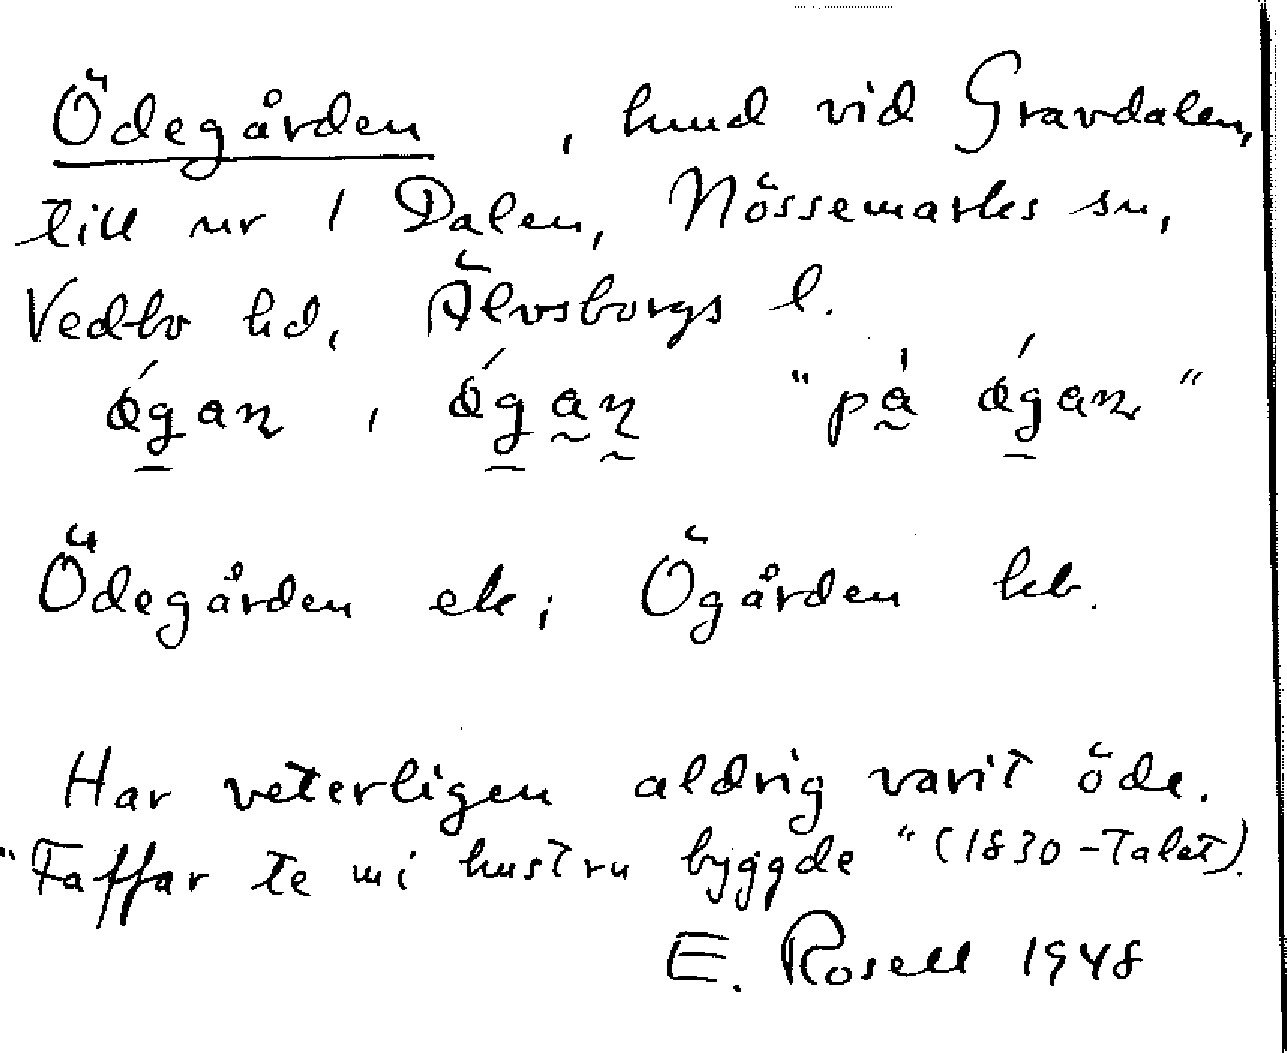 Ödegården, hmd vid Gravdalen,
till nr 1 Dalen, Nössemarks sn,
Vedbo hd, Älvsborgs l.
"på
Ödegården ek; Ögården kb.
Har veterligen aldrig varit öde.
"Faffar te mi hustru byggde" (1830-talet).
E. Rosell 1948